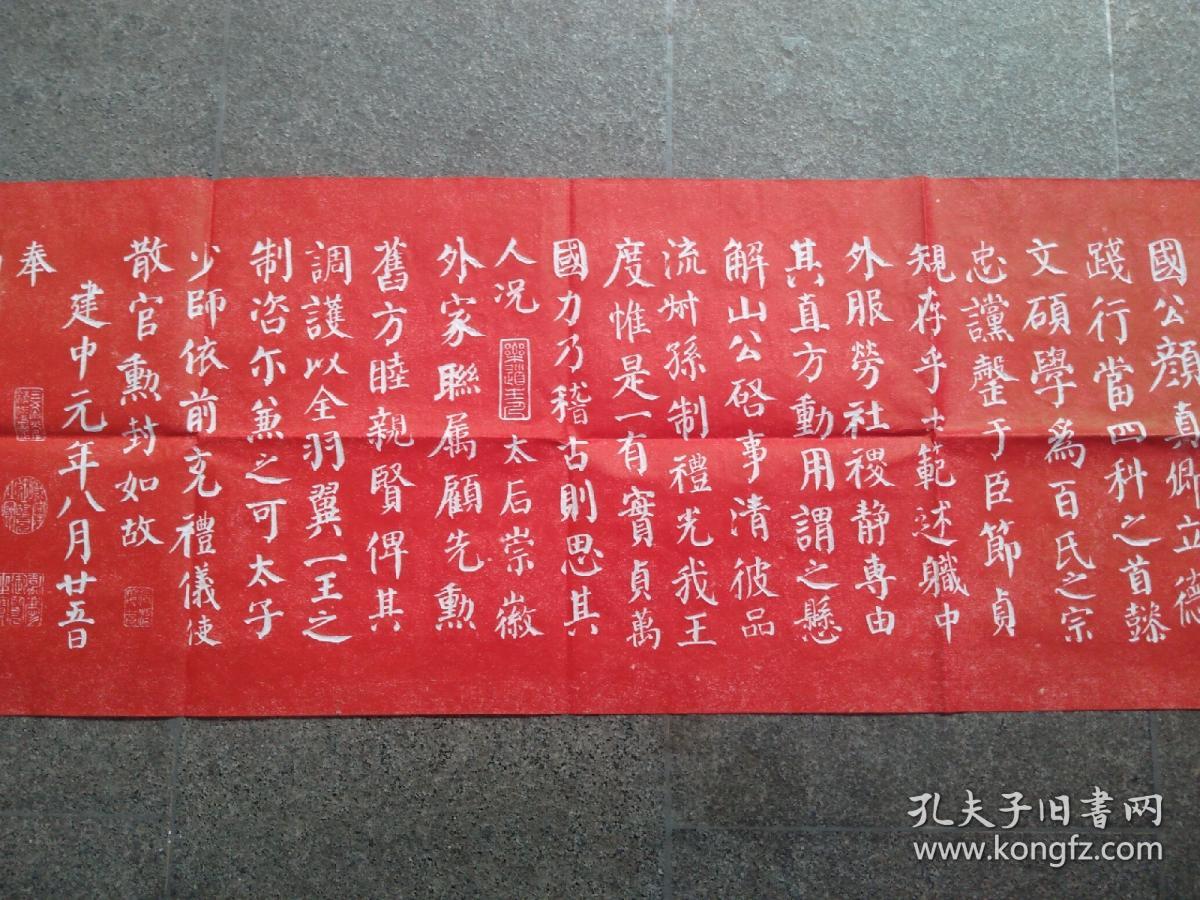 國公顏真卿立德
踐行當四科之首懿
文碩學為百氏之宗
忠讜罄于臣節貞
規存乎士範述職中
外服勞社稷靜專由
其直方動用謂之懸
解山公啓事清彼品
流叔孫制禮光我王
度惟是一有實貞萬
國力乃稽古則思其
人况 太后崇徽
外家聯屬顧先勳
舊方睦親賢俾其
調護以全羽翼一王之
制咨尔兼之可太子
少師依前充禮儀使
散官勳封如故
建中元年八月廿五日
奉
孔夫子旧书网
www.kongfz.com